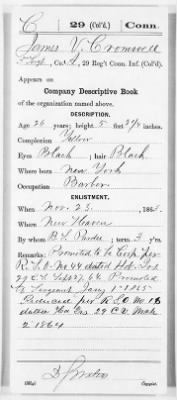 C 29 (Col'd.) Conn.
James V. Cromwell
Co. 29 Reg't Conn. Inf. (Col'd).
Appears on
Company Descriptive Book
of the organization named above.
DESCRIPTION.
Age 26 years; height 5 feet inches.
Complexion Yellow
Eyes Black; hair Black
Where born New York
Occupation Barber
ENLISTMENT.
When Nov. 23, 1863.
Where New Haven
By whom B. S. Pardee; term 3 y'rs.
Remarks: Promoted to be Corp. per
R. S. O. No 44 dated
29 C. V. Sept 27, 64. Promoted
to Sergeant Jany 1 1865
per R. S. O. No 18
dated 29 C. V.
2 1864
Copyist.